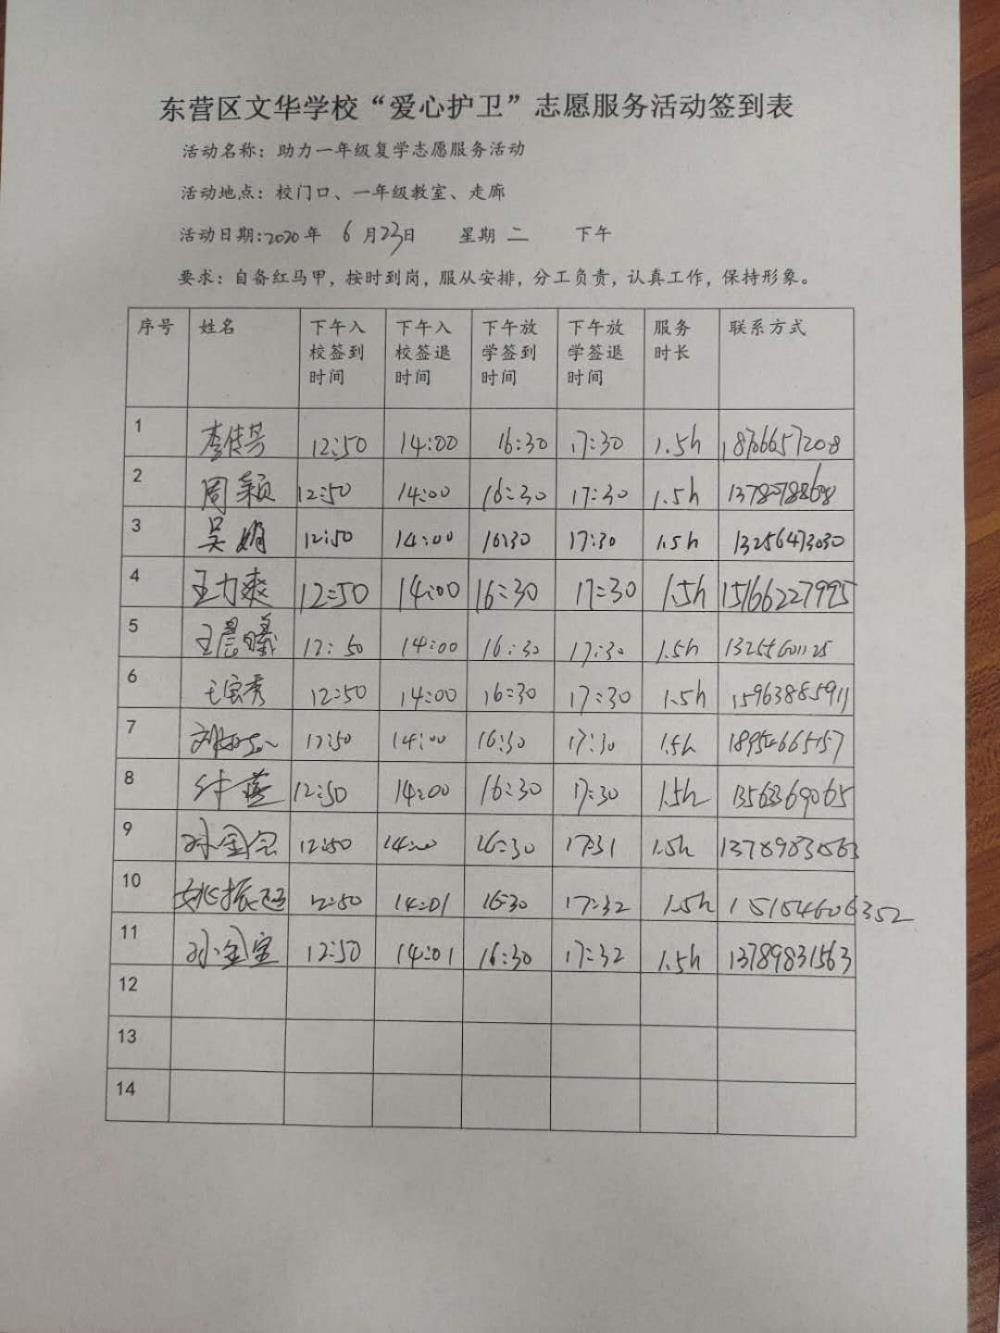 东营区文华学校“爱心护卫”志愿服务活动签到表
活动名称：助力一年级复学志愿服务活动
活动地点：校门口、一年级教室、走廊
活动日期：2020年 6月23日 星期 二 下午
要求：自备红马甲，按时到岗，服从安排，分工负责，认真工作，保持形象。
序号 姓名 下午入校签到时间 下午入校签退时间 下午放学签到时间 下午放学签退时间 服务时长 联系方式
1 李传芳 12:50 14:00 16:30 17:30 1.5h 18766657208
2 周颖 12:50 14:00 16:30 17:30 1.5h
3 吴娟 12:50 14:00 16:30 17:30 1.5h 13256473030
4 王力爽 12:50 14:00 16:30 17:30 1.5h 15166227995
5 王晨曦 12:50 14:00 16:30 17:30 1.5h
6 王宝秀 12:50 14:00 16:30 17:30 1.5h 15963885911
7 12:50 14:00 16:30 17:30 1.5h 18954666557
8 12:50 14:00 16:30 17:30 1.5h 13563369065
9 12:50 14:00 16:30 17:31 1.5h 13789831563
10 姚振廷 12:50 14:01 16:30 17:32 1.5h 15154606352
11 孙金宝 12:50 14:01 16:30 17:32 1.5h 13789831563
12
13
14